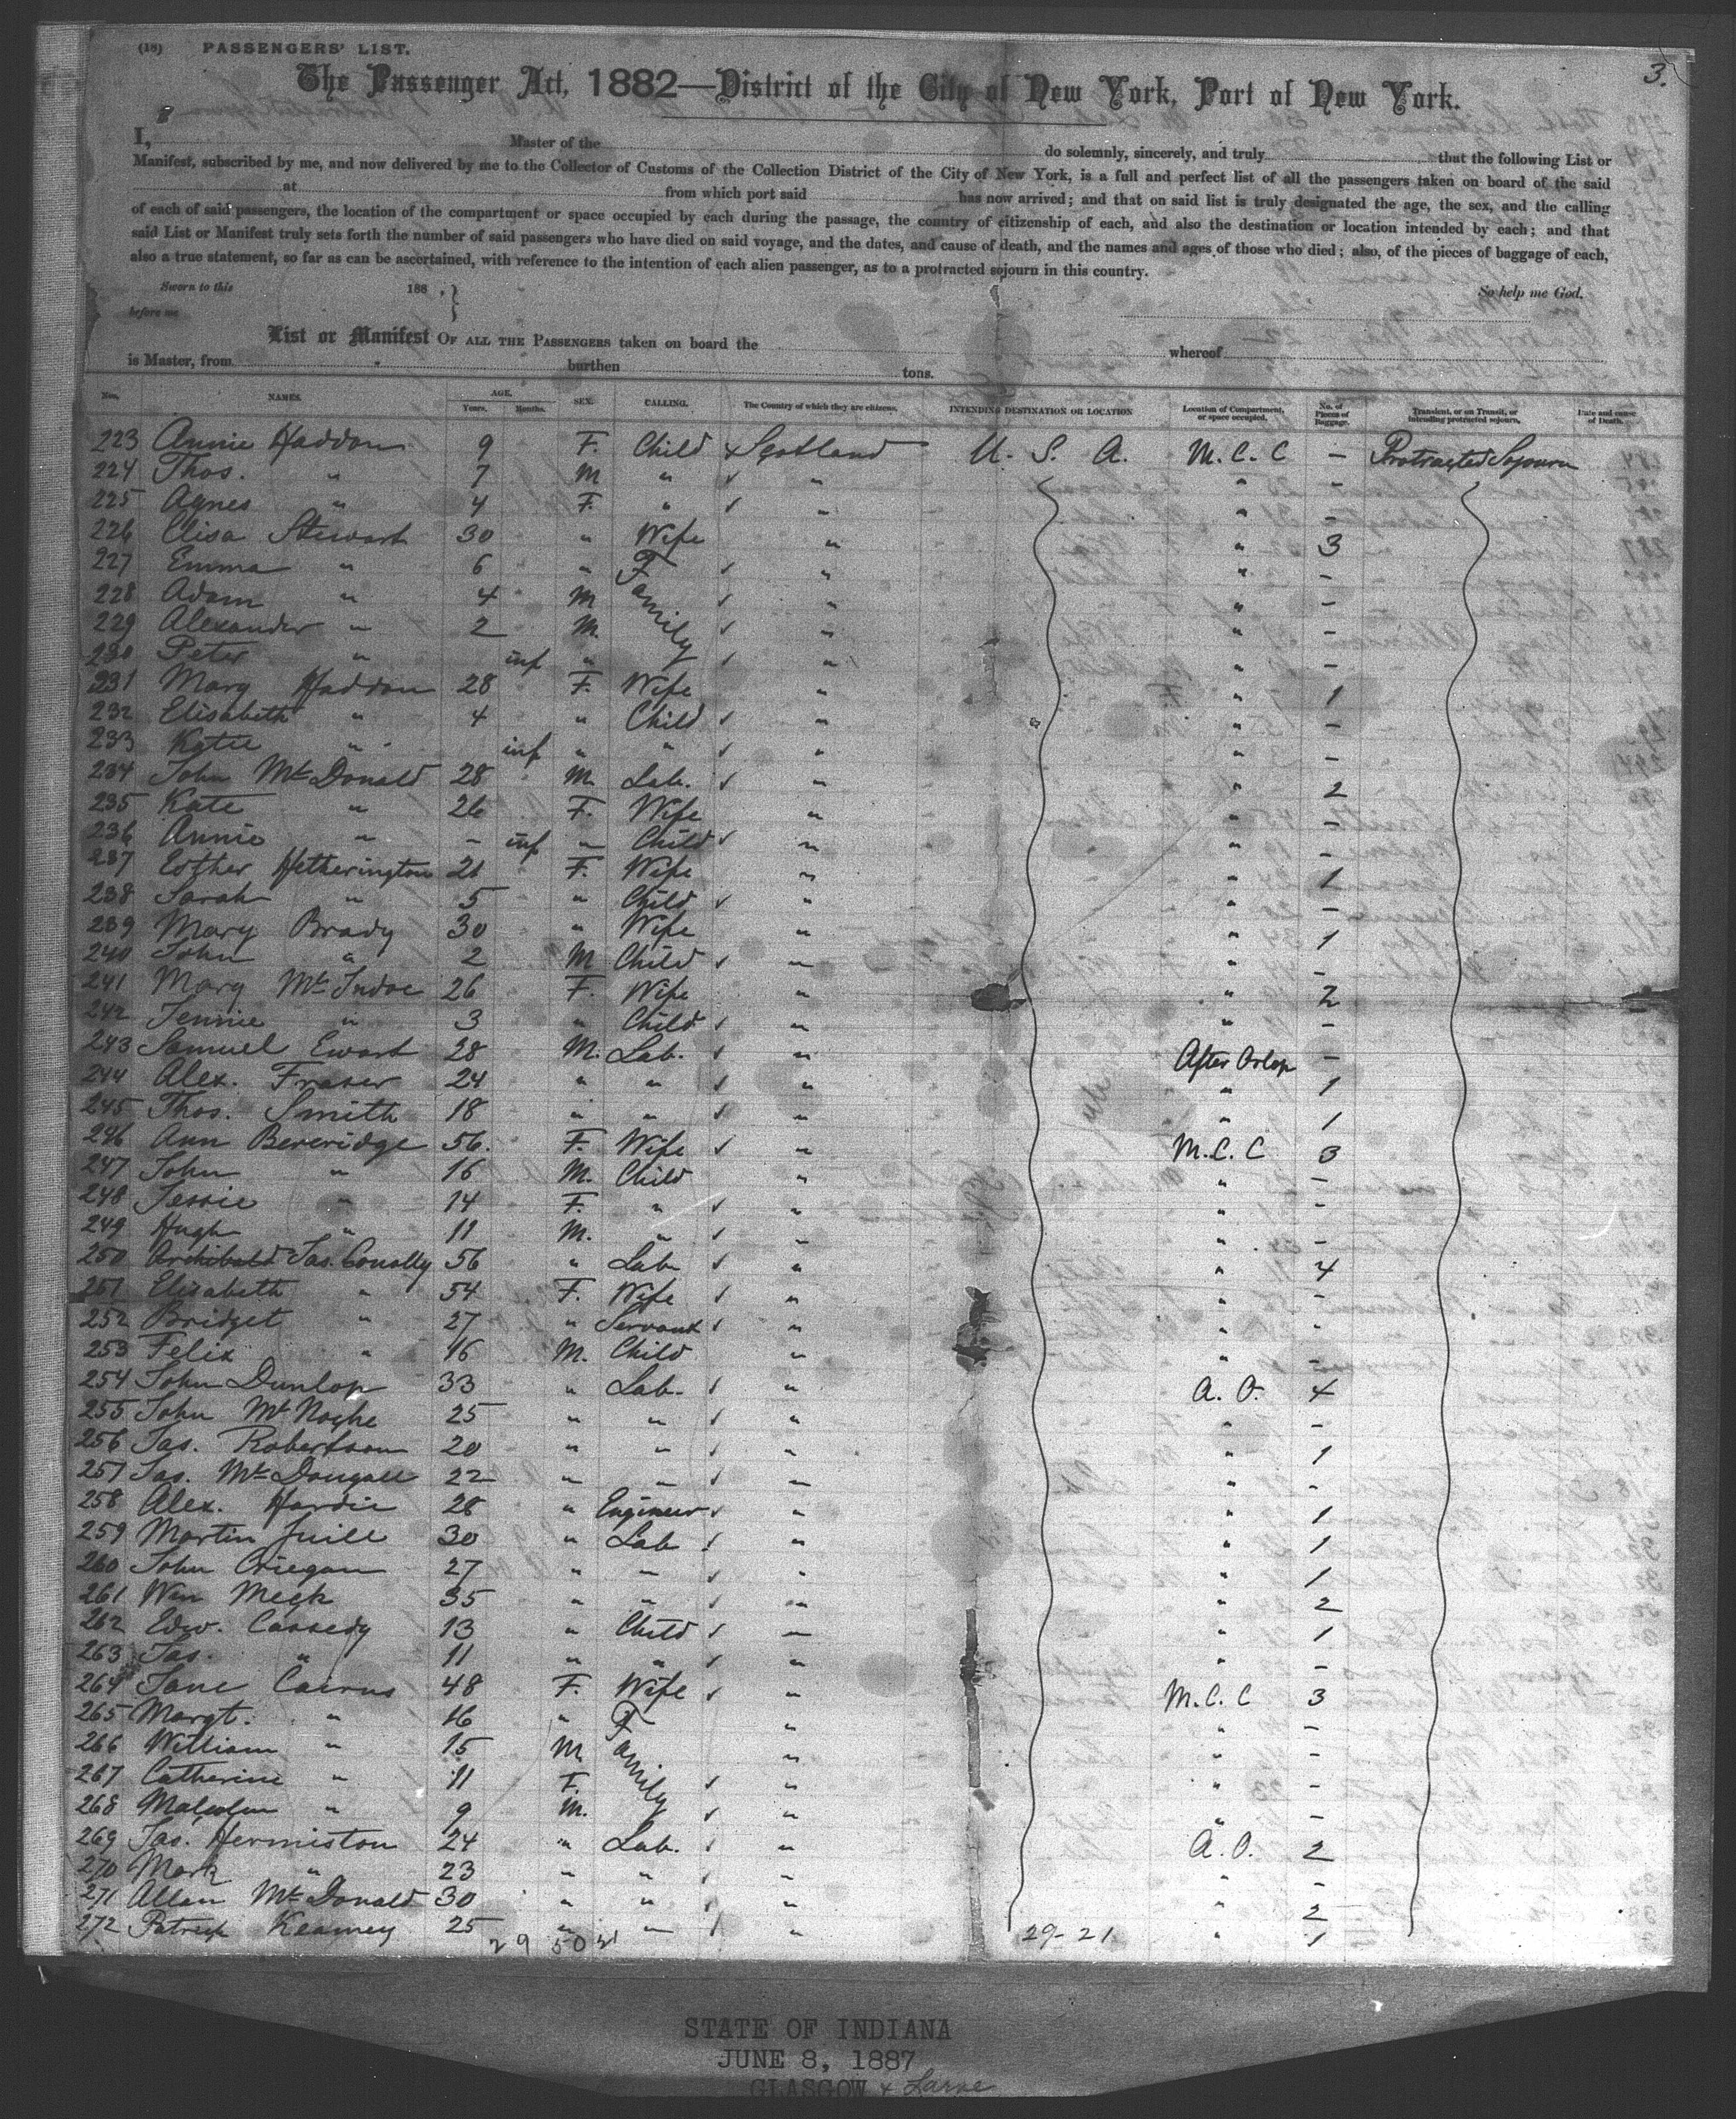 (18) PASSENGERS' LIST.
3.
The Passenger Act, 1882—District of the City of New York, Port of New York.
8
I, Master of the do solemnly, sincerely, and truly that the following List or
Manifest, subscribed by me, and now delivered by me to the Collector of Customs of the Collection District of the City of New York, is a full and perfect list of all the passengers taken on board of the said
at from which port said has now arrived; and that on said list is truly designated the age, the sex, and the calling
of each of said passengers, the location of the compartment or space occupied by each during the passage, the country of citizenship of each, and also the destination or location intended by each; and that
said List or Manifest truly sets forth the number of said passengers who have died on said voyage, and the dates, and cause of death, and the names and ages of those who died; also, of the pieces of baggage of each,
also a true statement, so far as can be ascertained, with reference to the intention of each alien passenger, as to a protracted sojourn in this country.
Sworn to this 188 . } So help me God.
before me
List or Manifest OF ALL THE PASSENGERS taken on board the whereof
is Master, from burthen tons.
Nos. NAMES. AGE. Years. Months. SEX. CALLING. The Country of which they are citizens. INTENDED DESTINATION OR LOCATION Location of Compartment, or space occupied. No. of Pieces of Baggage. Transient, or on Transit, or intending protracted sojourn. Date and cause of Death.
223 Annie Haddon 9 F. Child Scotland U. S. A. M. C. C - Protracted Sojourn
224 Thos. " 7 M " " " -
225 Agnes " 4 F. " " " -
226 Elisa Stewart 30 " Wife " " 3
227 Emma " 6 " Family " " -
228 Adam " 4 M " " -
229 Alexander " 2 M. " " -
230 Peter " inf " " " -
231 Mary Haddon 28 F. Wife " " 1
232 Elisabeth " 4 " Child " " -
233 Katie " inf " " " " -
234 John McDonald 28 M Lab. " " 2
235 Kate " 26 F. Wife " " -
236 Annie " - inf " Child " " -
237 Esther Hetherington 21 F. Wife " " 1
238 Sarah " 5 " Child " " -
239 Mary Brady 30 " Wife " " 1
240 John " 2 M Child " " -
241 Mary McIndoe 26 F. Wife " " 2
242 Jennie " 3 " Child " " -
243 Samuel Ewart 28 M. Lab. " After Orlop -
244 Alex. Fraser 24 " " " " 1
245 Thos. Smith 18 " " " " 1
246 Ann Beveridge 56. F. Wife " M. C. C 3
247 John " 16 M. Child " " -
248 Jessie " 14 F. " " " -
249 Hugh " 11 M. " " " -
250 Archibald Jas. Conolly 56 " Lab " " 4
251 Elisabeth " 54 F. Wife " " -
252 Bridget " 27 " Servant " " -
253 Felix " 16 M. Child " " -
254 John Dunlop 33 " Lab. " A. O. 4
255 John 25 " " " " -
256 Jas. Robertson 20 " " " " 1
257 Jas. McDougall 22 " " " " -
258 Alex. Hardie 28 " Engineer " " 1
259 Martin 30 " Lab " " 1
260 John 27 " " " " 1
261 Wm 35 " " " " 2
262 Edw. Cassedy 13 " Child " " 1
263 Jas. " 11 " " " " -
264 Jane Cairns 48 F. Wife " M. C. C 3
265 Margt. " 16 " Family " " -
266 William " 15 M. " " -
267 Catherine " 11 F. " " -
268 Malcolm " 9 M. " " -
269 Jas. Hermiston 24 " Lab. " A. O. 2
270 Mark " 23 " " " " -
271 Allan McDonald 30 " " " " 2
272 Patrick Kearney 25 " " " " 1
29 50 29-21
STATE OF INDIANA
JUNE 8, 1887
GLASGOW & Larne